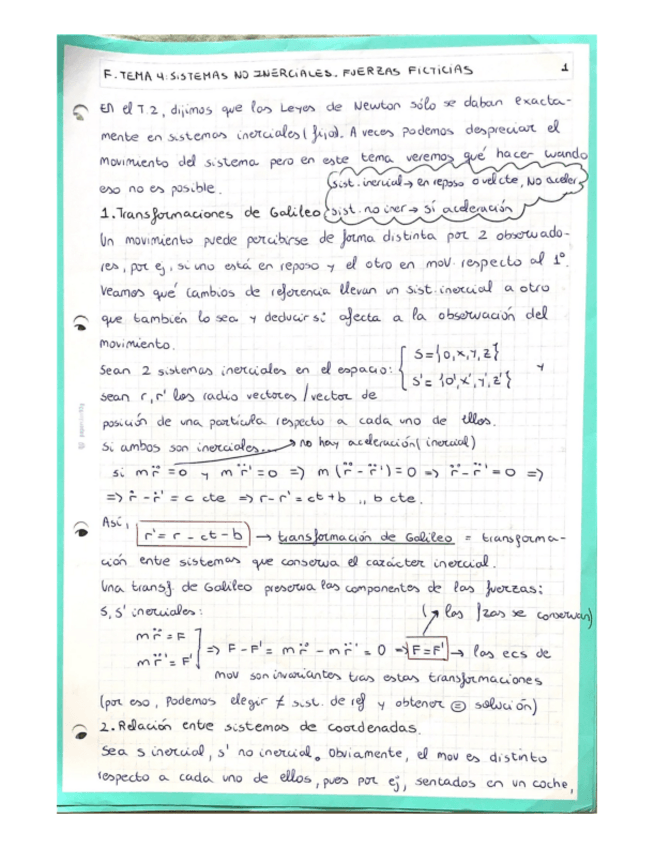 F. TEMA 4: SISTEMAS NO INERCIALES. FUERZAS FICTICIAS 1
En el T.2, dijimos que las Leyes de Newton sólo se daban exacta-
mente en sistemas inerciales (fijo). A veces podemos despreciar el
movimiento del sistema pero en este tema veremos qué hacer cuando
eso no es posible.
(sist. inercial → en reposo o vel cte, NO aceler
1. Transformaciones de Galileo (sist. no iner → sí aceleración
Un movimiento puede percibirse de forma distinta por 2 observado-
res, por ej, si uno está en reposo y el otro en mov. respecto al 1º.
Veamos qué cambios de referencia llevan un sist. inercial a otro
que también lo sea y deducir si afecta a la observación del
movimiento.
Sean 2 sistemas inerciales en el espacio: { S={O,x,y,z} S'={O',x',y',z'} y
sean r, r' los radio vectores / vector de
posición de una partícula respecto a cada uno de ellos.
Si ambos son inerciales... → no hay aceleración (inercial)
si m r̈ = 0 y m r̈' = 0 => m (r̈ - r̈') = 0 => r̈ - r̈' = 0 =>
=> ṙ - ṙ' = c cte => r - r' = ct + b ,, b cte.
Así, r' = r - ct - b → transformación de Galileo = transforma-
ción entre sistemas que conserva el carácter inercial.
Una transf. de Galileo preserva las componentes de las fuerzas:
S, S' inerciales: (las fzas se conservan)
m r̈ = F
m r̈' = F' ] => F - F' = m r̈ - m r̈' = 0 => F = F' → las ecs de
mov son invariantes tras estas transformaciones
(por eso, podemos elegir ≠ sist. de ref y obtener = solución)
2. Relación entre sistemas de coordenadas.
Sea S inercial, S' no inercial. Obviamente, el mov es distinto
respecto a cada uno de ellos, pues por ej, sentados en un coche,